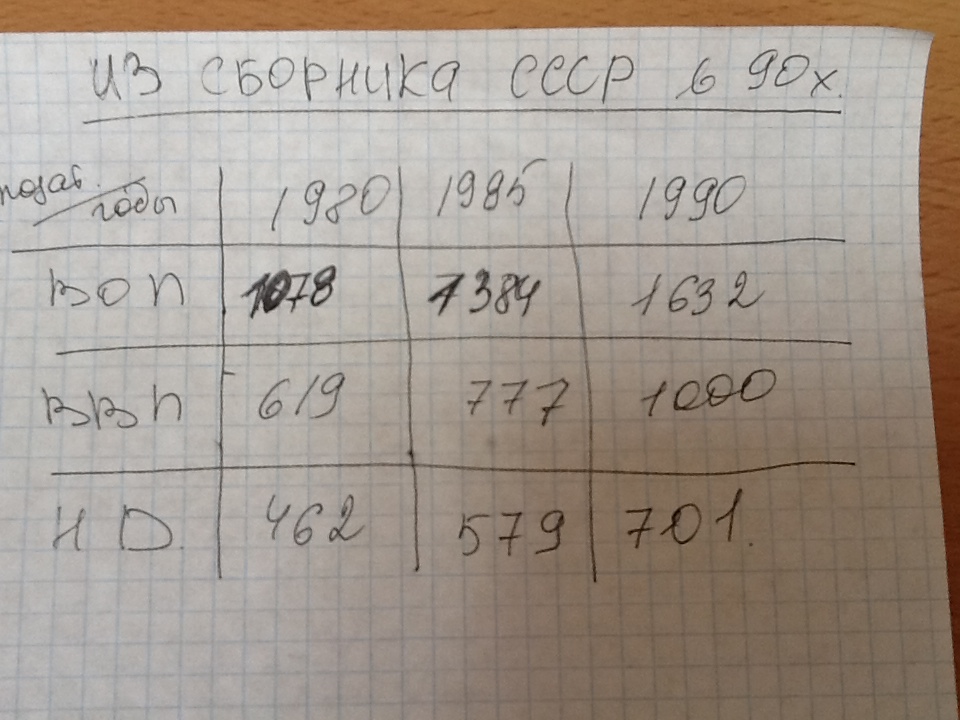 ИЗ СБОРНИКА СССР в 90х.
годы 1980 1985 1990
ВОП 1078 1384 1632
ВВП 619 777 1000
НД. 462 579 701.